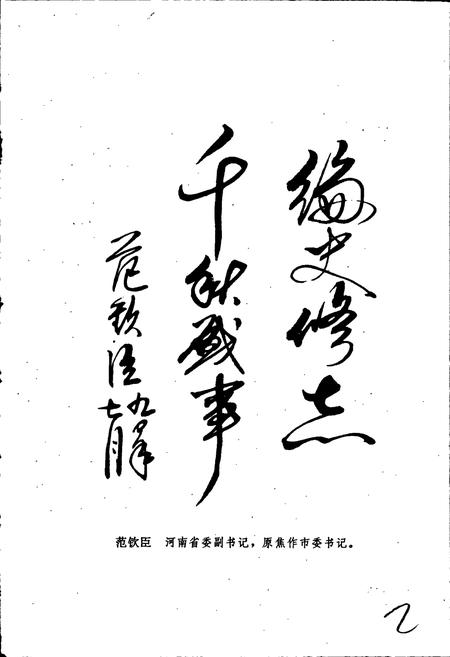 编史修志
千秋盛事
范钦臣 九〇年
七月
范钦臣 河南省委副书记，原焦作市委书记。